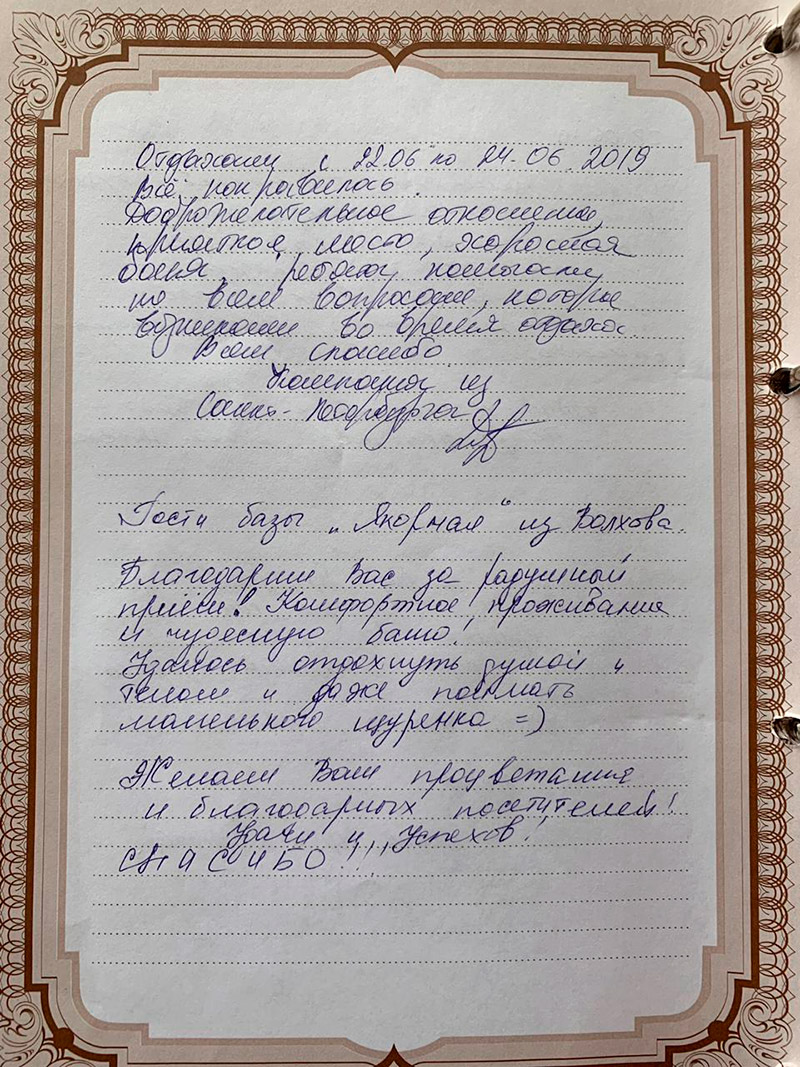 Отдыхали с 22.06 по 24.06.2019
Всё понравилось.
Доброжелательное отношение,
приятное место, хорошая
баня. Ребята помогали
по всем вопросам, которые
возникали во время отдыха.
Всем спасибо
Компания из
Санкт-Петербурга
Гости базы „Якорная“ из Волхова.
Благодарим Вас за радушный
прием! Комфортное проживание
и чудесную баню!
Удалось отдохнуть душой и
телом и даже поймать
маленького щуренка =)
Желаем Вам процветания
и благодарных посетителей!
Удачи и Успехов!
СПАСИБО!!!